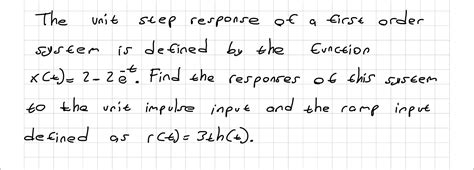 The unit step response of a first order
system is defined by the function
x(t) = 2 - 2e^-t. Find the responses of this system
to the unit impulse input and the ramp input
defined as r(t) = 3th(t).